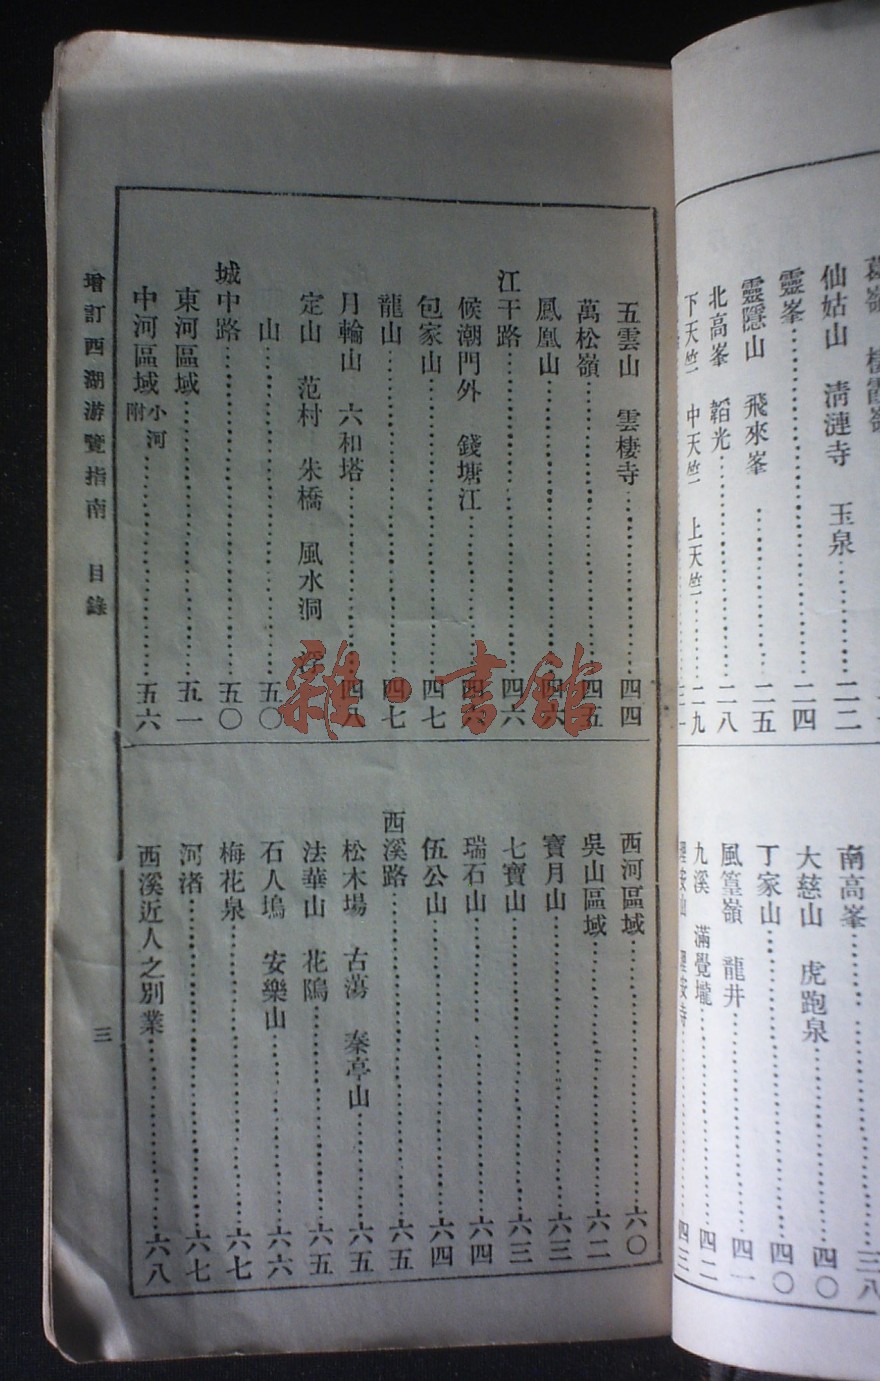 葛嶺 棲霞嶺
仙姑山 清漣寺 玉泉……二二
靈峯……二四
靈隱山 飛來峯……二五
北高峯 韜光……二八
下天竺 中天竺 上天竺……二九
南高峯……三八
大慈山 虎跑泉……四〇
丁家山……四〇
風篁嶺 龍井……四一
九溪 滿覺壠……四二
理安山 理安寺……四三
五雲山 雲棲寺……四四
萬松嶺……四五
鳳凰山……四六
江干路……四六
候潮門外 錢塘江……四六
包家山……四七
龍山……四七
月輪山 六和塔……四八
定山 范村 朱橋 風水洞
山……五〇
城中路……五〇
東河區域……五一
中河區域 小河附……五六
西河區域……六〇
吳山區域……六二
寶月山……六三
七寶山……六三
瑞石山……六四
伍公山……六四
西溪路……六五
松木場 古蕩 秦亭山……六五
法華山 花隖……六五
石人塢 安樂山……六六
梅花泉……六七
河渚……六七
西溪近人之別業……六八
增訂西湖游覽指南 目錄
三
雜·書館